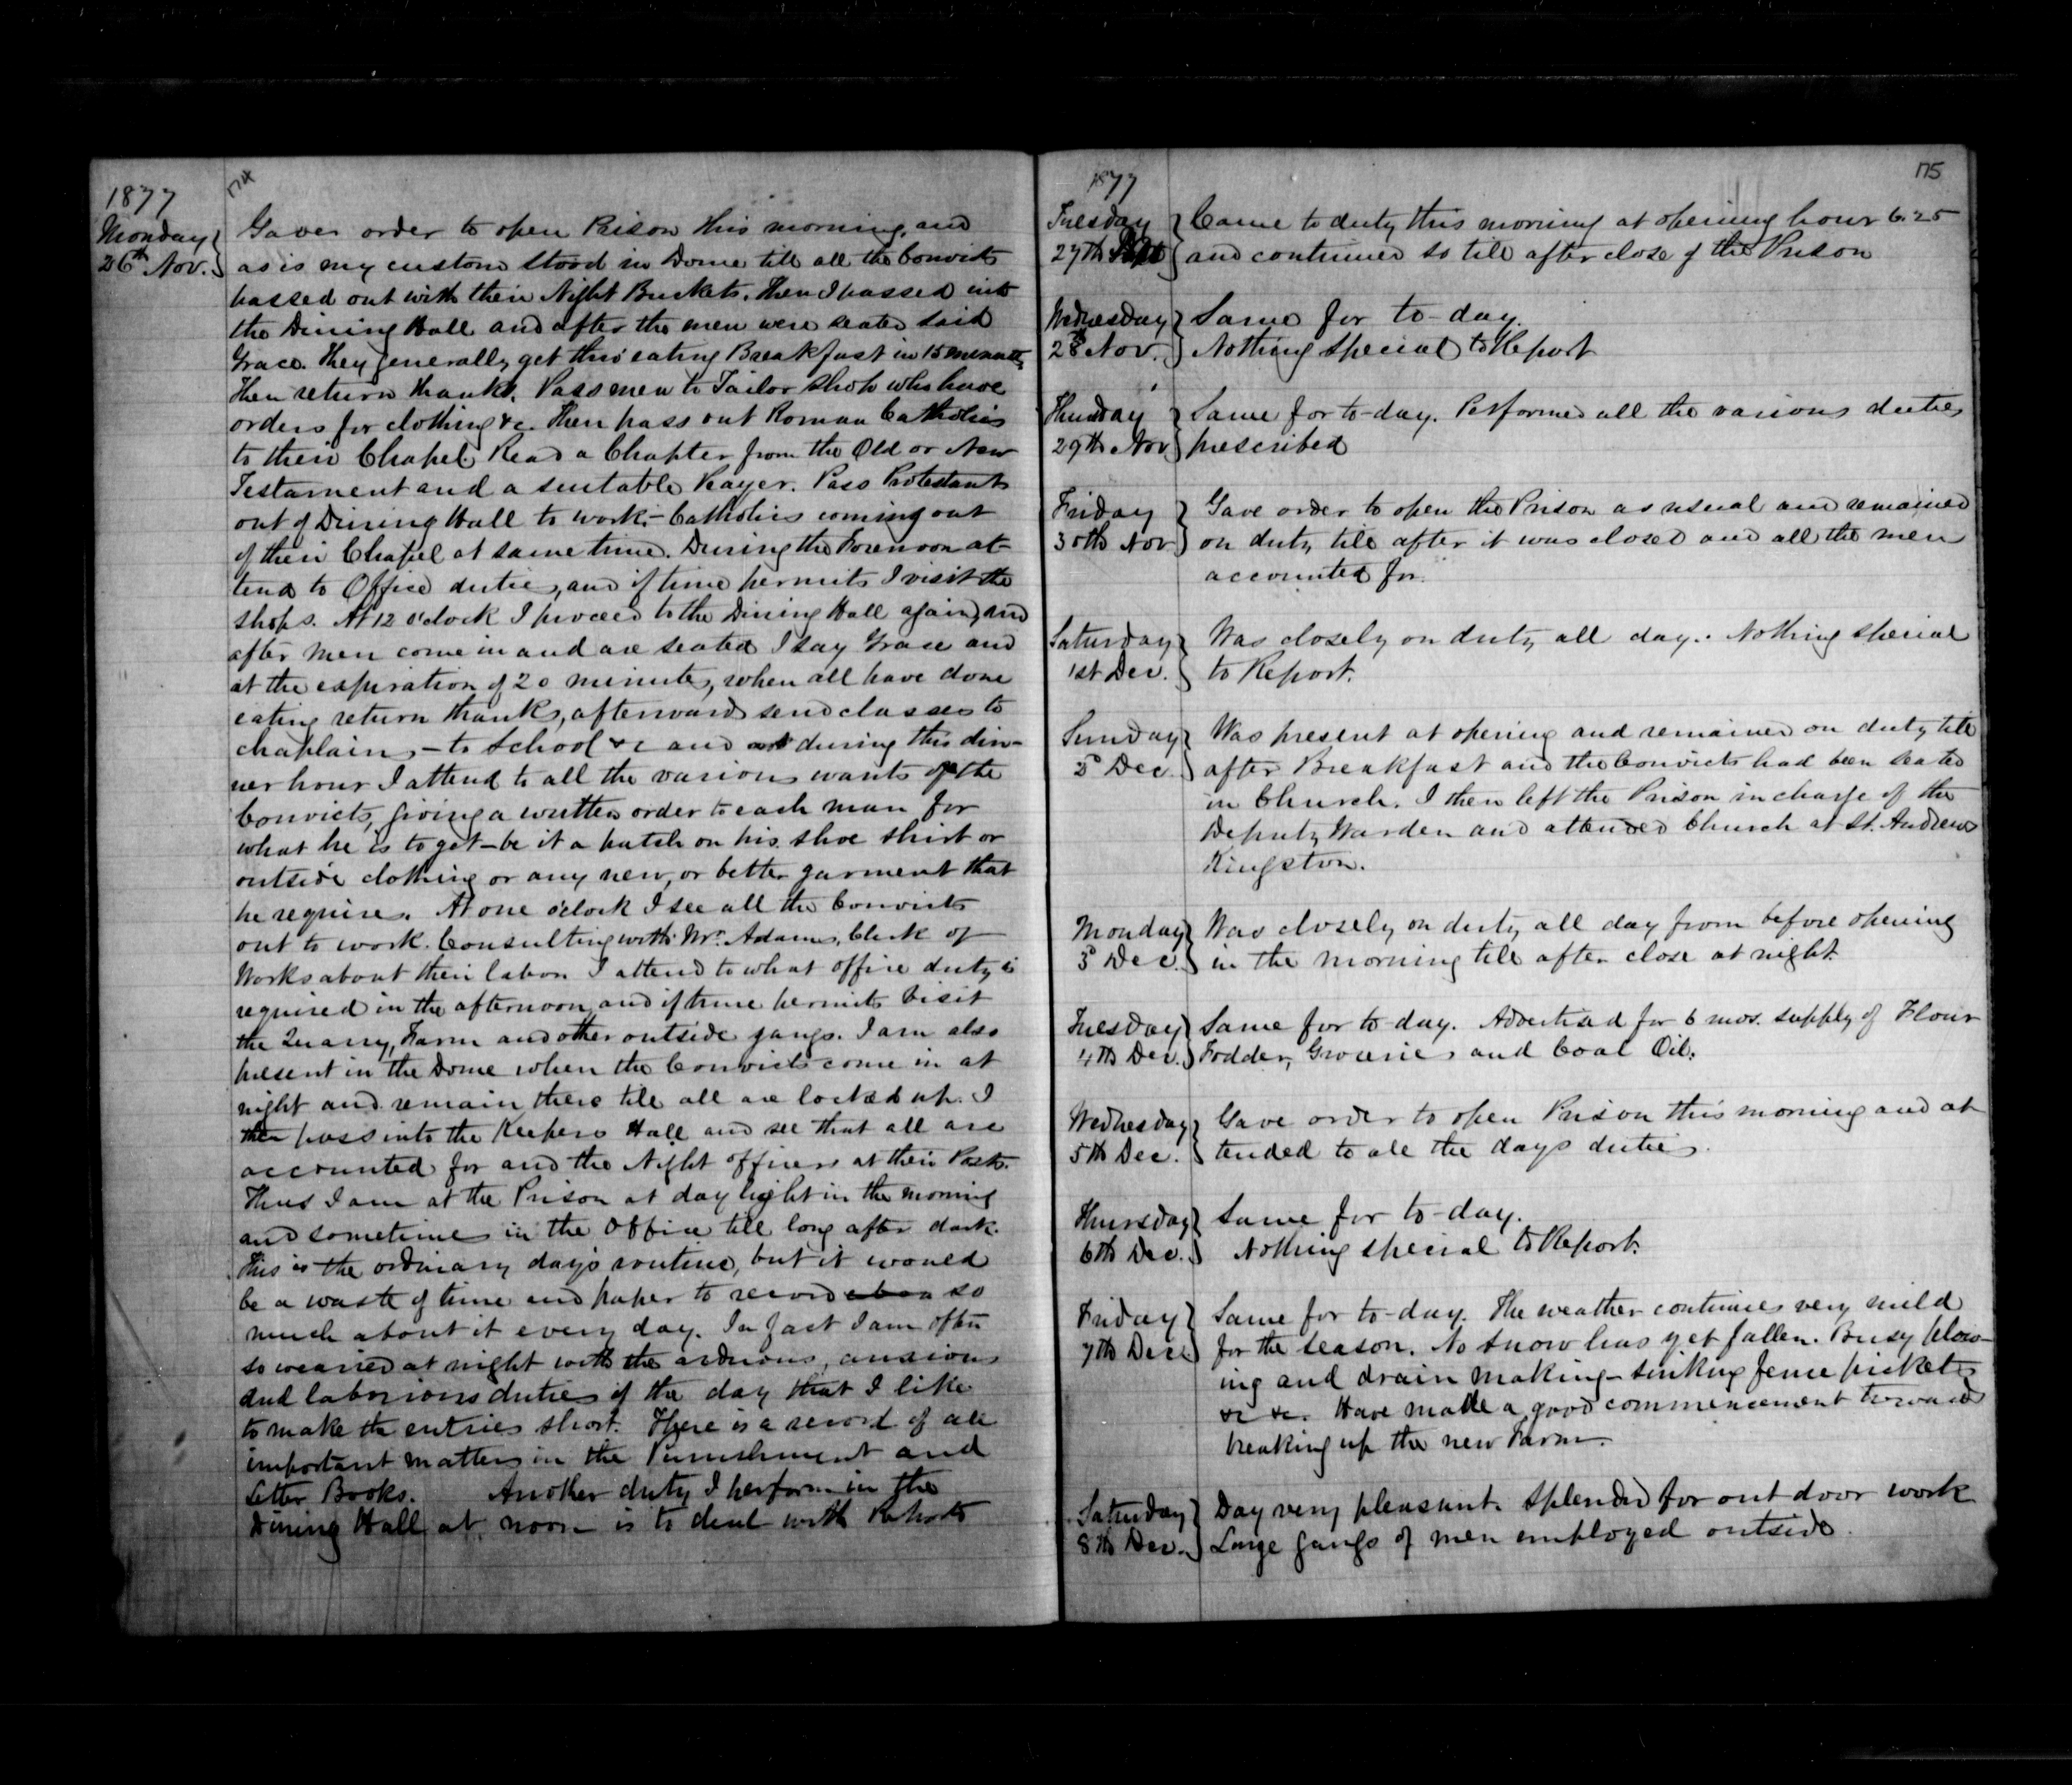 1877
174
Monday
26th Nov.
Gave order to open Prison this morning, and
as is my custom stood in Dome till all the Convicts
passed out with their Night Buckets. Then I passed into
the Dining Hall and after the men were seated said
Grace. They generally get thro' eating Breakfast in 15 minutes
Then return thanks. Pass men to Tailor Shop who have
orders for clothing &c. Then pass out Roman Catholics
to their Chapel. Read a Chapter from the Old or New
Testament and a suitable Prayer. Pass Protestants
out of Dining Hall to work - Catholics coming out
of their Chapel at same time. During the Forenoon at-
tend to Office duties, and if time permits I visit the
shops. At 12 o'clock I proceed to the Dining Hall again, and
after men come in and are seated I say Grace and
at the expiration of 20 minutes, when all have done
eating return thanks, afterwards send classes to
chaplain, - to School &c and during this din-
ner hour I attend to all the various wants of the
Convicts, giving a written order to each man for
what he is to get - be it a patch on his shoe shirt or
outside clothing or any new, or better garment that
he requires. At one o'clock I see all the Convicts
out to work. Consulting with Mr. Adams, Clerk of
Works about their labor. I attend to what office duty is
required in the afternoon, and if time permits visit
the Quarry, Farm and other outside gangs. I am also
present in the Dome when the Convicts come in at
night and remain there till all are locked up. I
then pass into the Keepers Hall and see that all are
accounted for and the Night Officers at their Posts.
Thus I am at the Prison at day light in the morning
and sometimes in the Office till long after dark.
This is the ordinary day's routine, but it would
be a waste of time and paper to record so
much about it every day. In fact I am often
so wearied at night with the arduous, anxious
and laborious duties of the day that I like
to make the entries short. There is a record of all
important matters in the Punishment and
Letter Books. Another duty I perform in the
Dining Hall at noon is to deal with Reports
1877
175
Tuesday
27th
Came to duty this morning at opening hour 6.25
and continued so till after close of the Prison
Wednesday
28 Nov.
Same for to-day.
Nothing special to Report
Thursday
29th Nov
Same for to-day. Performed all the various duties
prescribed
Friday
30th Nov
Gave order to open the Prison as usual and remained
on duty till after it was closed and all the men
accounted for.
Saturday
1st Dec.
Was closely on duty all day. Nothing special
to Report.
Sunday
Dec.
Was present at opening and remained on duty till
after Breakfast and the Convicts had been seated
in Church. I then left the Prison in charge of the
Deputy Warden and attended Church at St. Andrews
Kingston.
Monday
3 Dec.
Was closely on duty all day from before opening
in the morning till after close at night.
Tuesday
4th Dec.
Same for to-day. Advertised for 6 mos. supply of Flour
Fodder, Groceries and Coal Oil.
Wednesday
5th Dec.
Gave order to open Prison this morning and at-
tended to all the days duties.
Thursday
6th Dec.
Same for to-day.
Nothing special to Report.
Friday
7th Dec
Same for to-day. The weather continues very mild
for the season. No snow has yet fallen. Busy plow-
ing and drain making - sinking fence pickets
&c &c. Have made a good commencement towards
breaking up the new Farm.
Saturday
8th Dec.
Day very pleasant. Splendid for out door work
Large gangs of men employed outside.